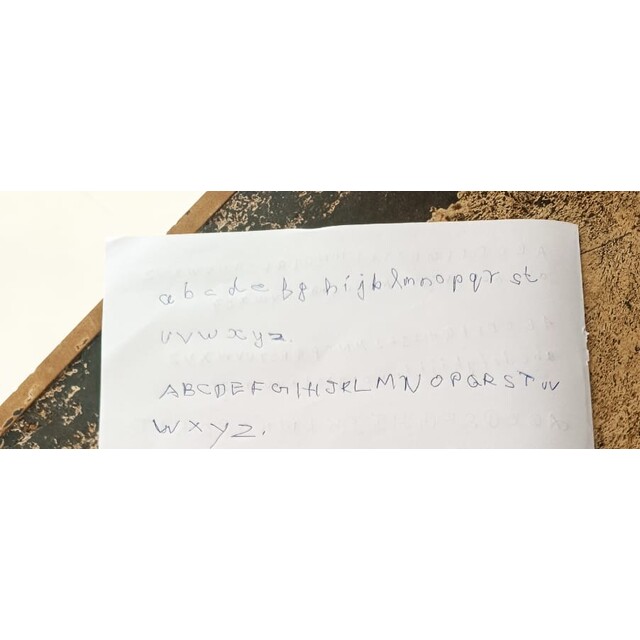 a b c d e f g h i j k l m n o p q r s t
u v w x y z.
A B C D E F G H I J K L M N O P Q R S T U V
W X Y Z.